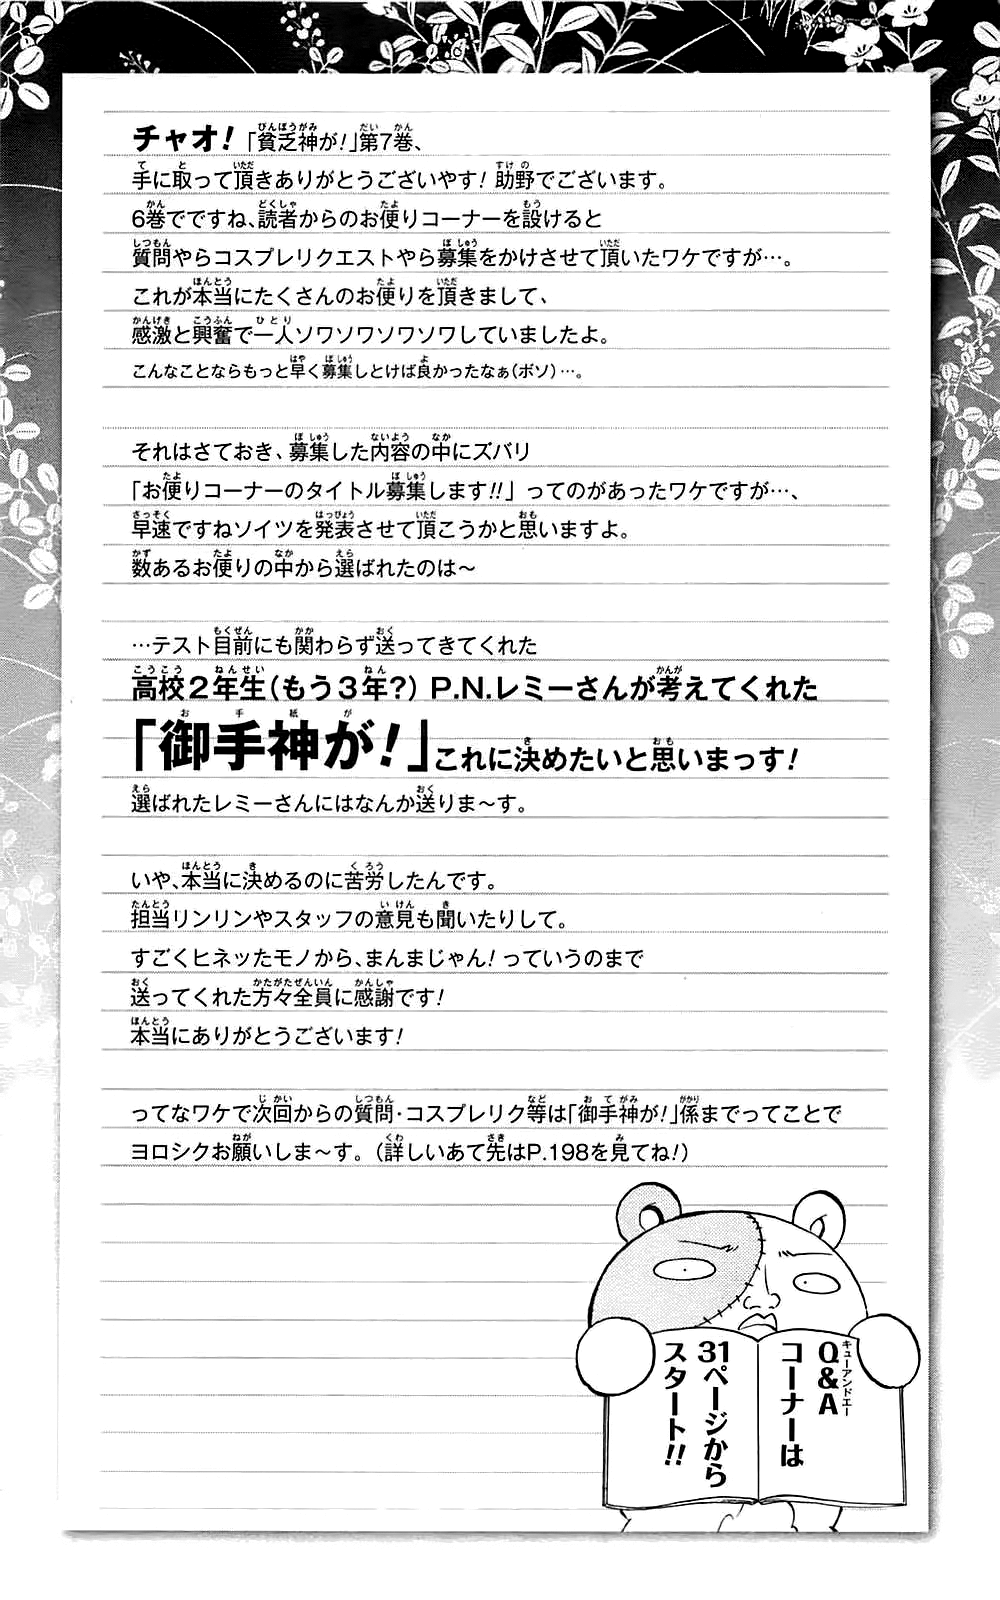 チャオ!「貧乏神が!」第7巻、
手に取って頂きありがとうございやす! 助野でございます。
6巻でですね、読者からのお便りコーナーを設けると
質問やらコスプレリクエストやら募集をかけさせて頂いたワケですが…。
これが本当にたくさんのお便りを頂きまして、
感激と興奮で一人ソワソワソワソワしていましたよ。
こんなことならもっと早く募集しとけば良かったなぁ(ボソ)…。
それはさておき、募集した内容の中にズバリ
「お便りコーナーのタイトル募集します!!」ってのがあったワケですが…、
早速ですねソイツを発表させて頂こうかと思いますよ。
数あるお便りの中から選ばれたのは〜
…テスト目前にも関わらず送ってきてくれた
高校2年生(もう3年?) P.N.レミーさんが考えてくれた
「御手神が!」これに決めたいと思いまっす!
選ばれたレミーさんにはなんか送りま〜す。
いや、本当に決めるのに苦労したんです。
担当リンリンやスタッフの意見も聞いたりして。
すごくヒネッたモノから、まんまじゃん! っていうのまで
送ってくれた方々全員に感謝です!
本当にありがとうございます!
ってなワケで次回からの質問・コスプレリク等は「御手神が!」係までってことで
ヨロシクお願いしま〜す。(詳しいあて先はP.198を見てね!)
Q&A
コーナーは
31ページから
スタート!!